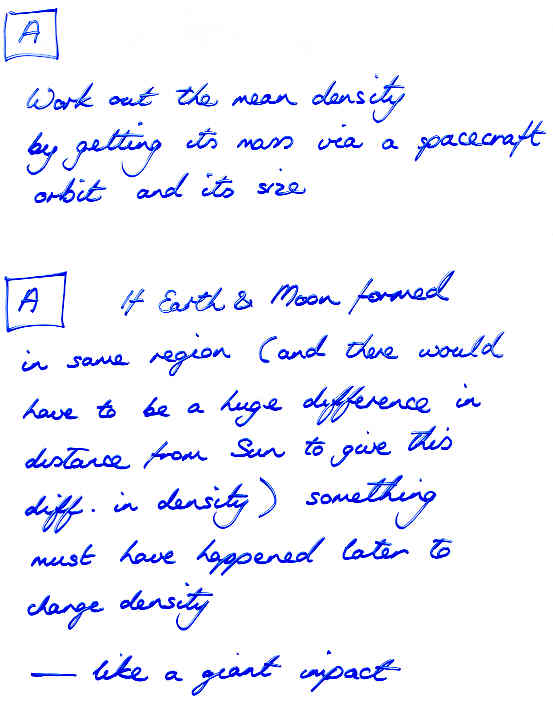 A
Work out the mean density
by getting its mass via a spacecraft
orbit and its size
A If Earth & Moon formed
in same region (and there would
have to be a huge difference in
distance from Sun to give this
diff. in density) something
must have happened later to
change density
— like a giant impact